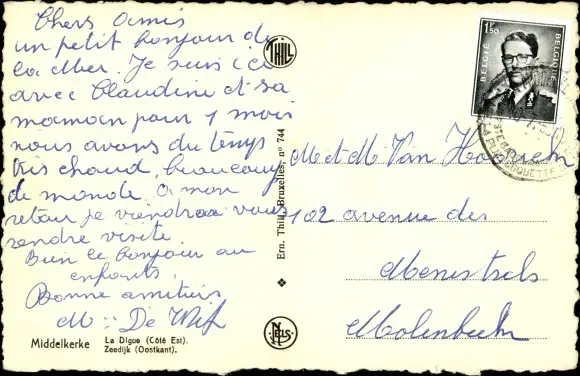 Chers amis
un petit bonjour de
la Mer. Je suis ici
avec Claudine et sa
maman pour 1 mois
nous avons du temps
tris chaud, beaucoup
de monde. a mon
retour je viendrai vous
rendre visite.
Bien le bonjour au
enfants.
Bonne amitiés
M :: De
Middelkerke
La Digue (Côté Est).
Zeedijk (Oostkant).
THILL
Ern. Thill, Bruxelles, n° 744
NELS
1F50
BELGIE
BELGIQUE
M et M Van
102 avenue des
Menestrels
Molenbeek